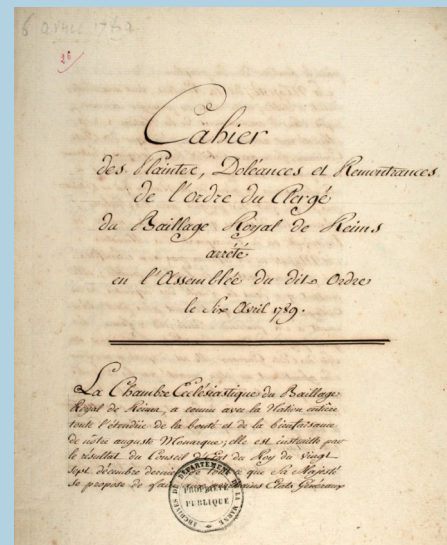 6 avril 1789
26
Cahier
des Plaintes, Doléances et Remontrances
de l'ordre du Clergé
du Baillage Royal de Reims
arrêté
en l'Assemblée du dit Ordre
le Six Avril 1789.
La Chambre Ecclésiastique du Baillage
Royal de Reims, a connu avec la Nation entière
toute l'étendue de la bonté et de la bienfaisance
de nôtre auguste Monarque; elle est instruite par
le résultat du Conseil d'Etat du Roy du vingt
sept décembre dernier de tout ce que Sa Majesté
se propose de faire aux Etats Généraux
ARCHIVES DU DEPARTEMENT DE LA MARNE
PROPRIÉTÉ
PUBLIQUE